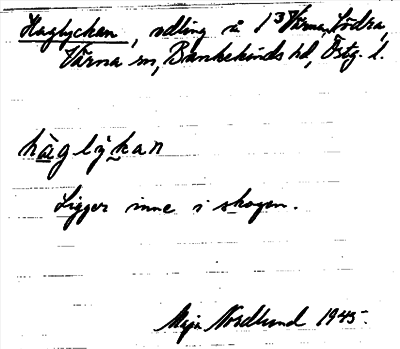 Haglyckan, odling å 1³ Värna, Södra,
Värna sn, Bankekinds hd, Östg. l.
hàglỳkan
Ligger inne i skogen.
Maja Nordlund 1945.